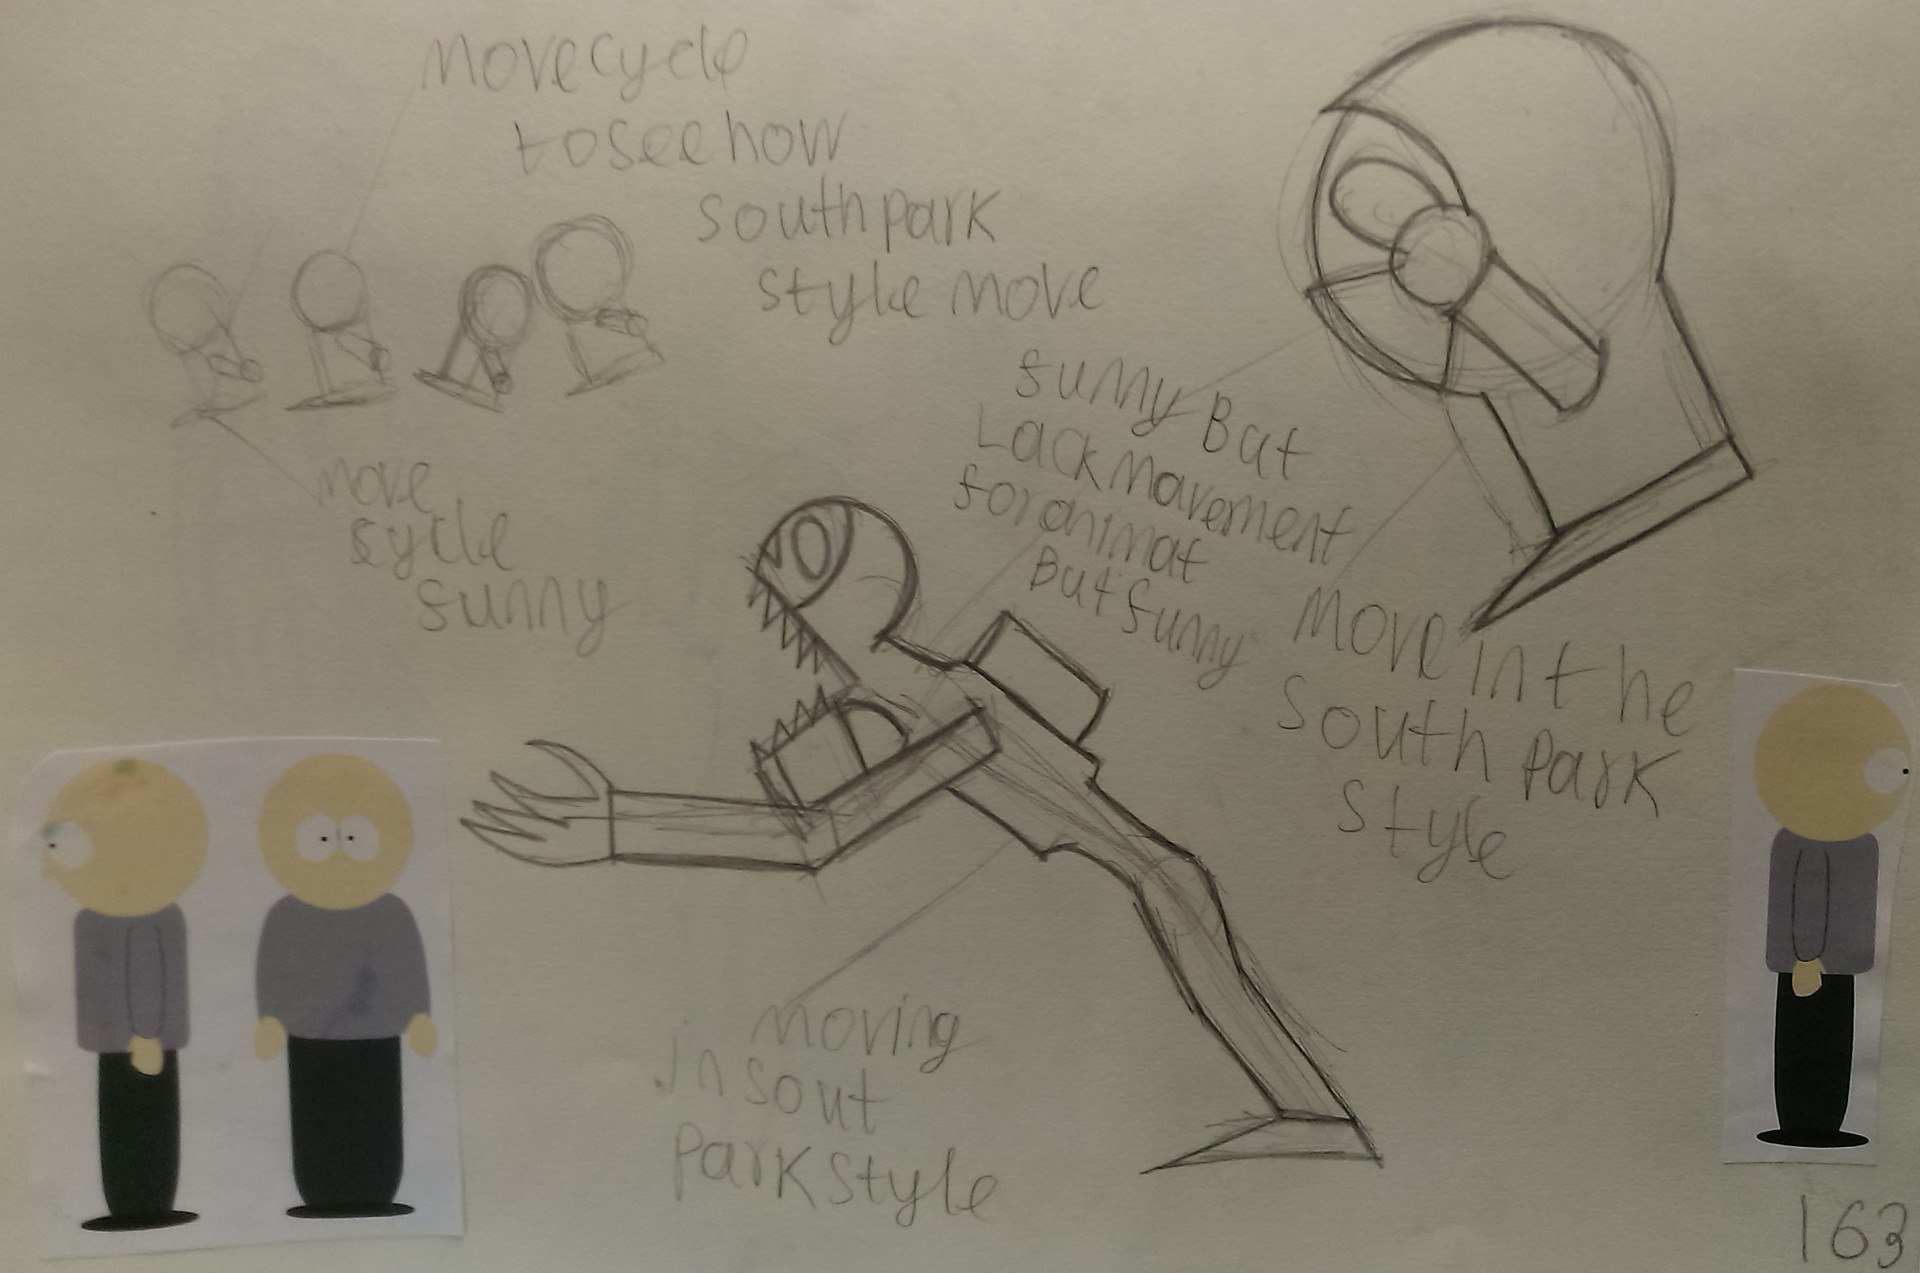 move cycle
to see how
south park
style move
move
sycle
funny
funny But
Lack mavement
for animat
But funny
move in the
south park
style
moving
in sout
park style
163